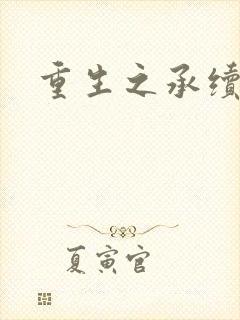 重生之承续
夏寅官